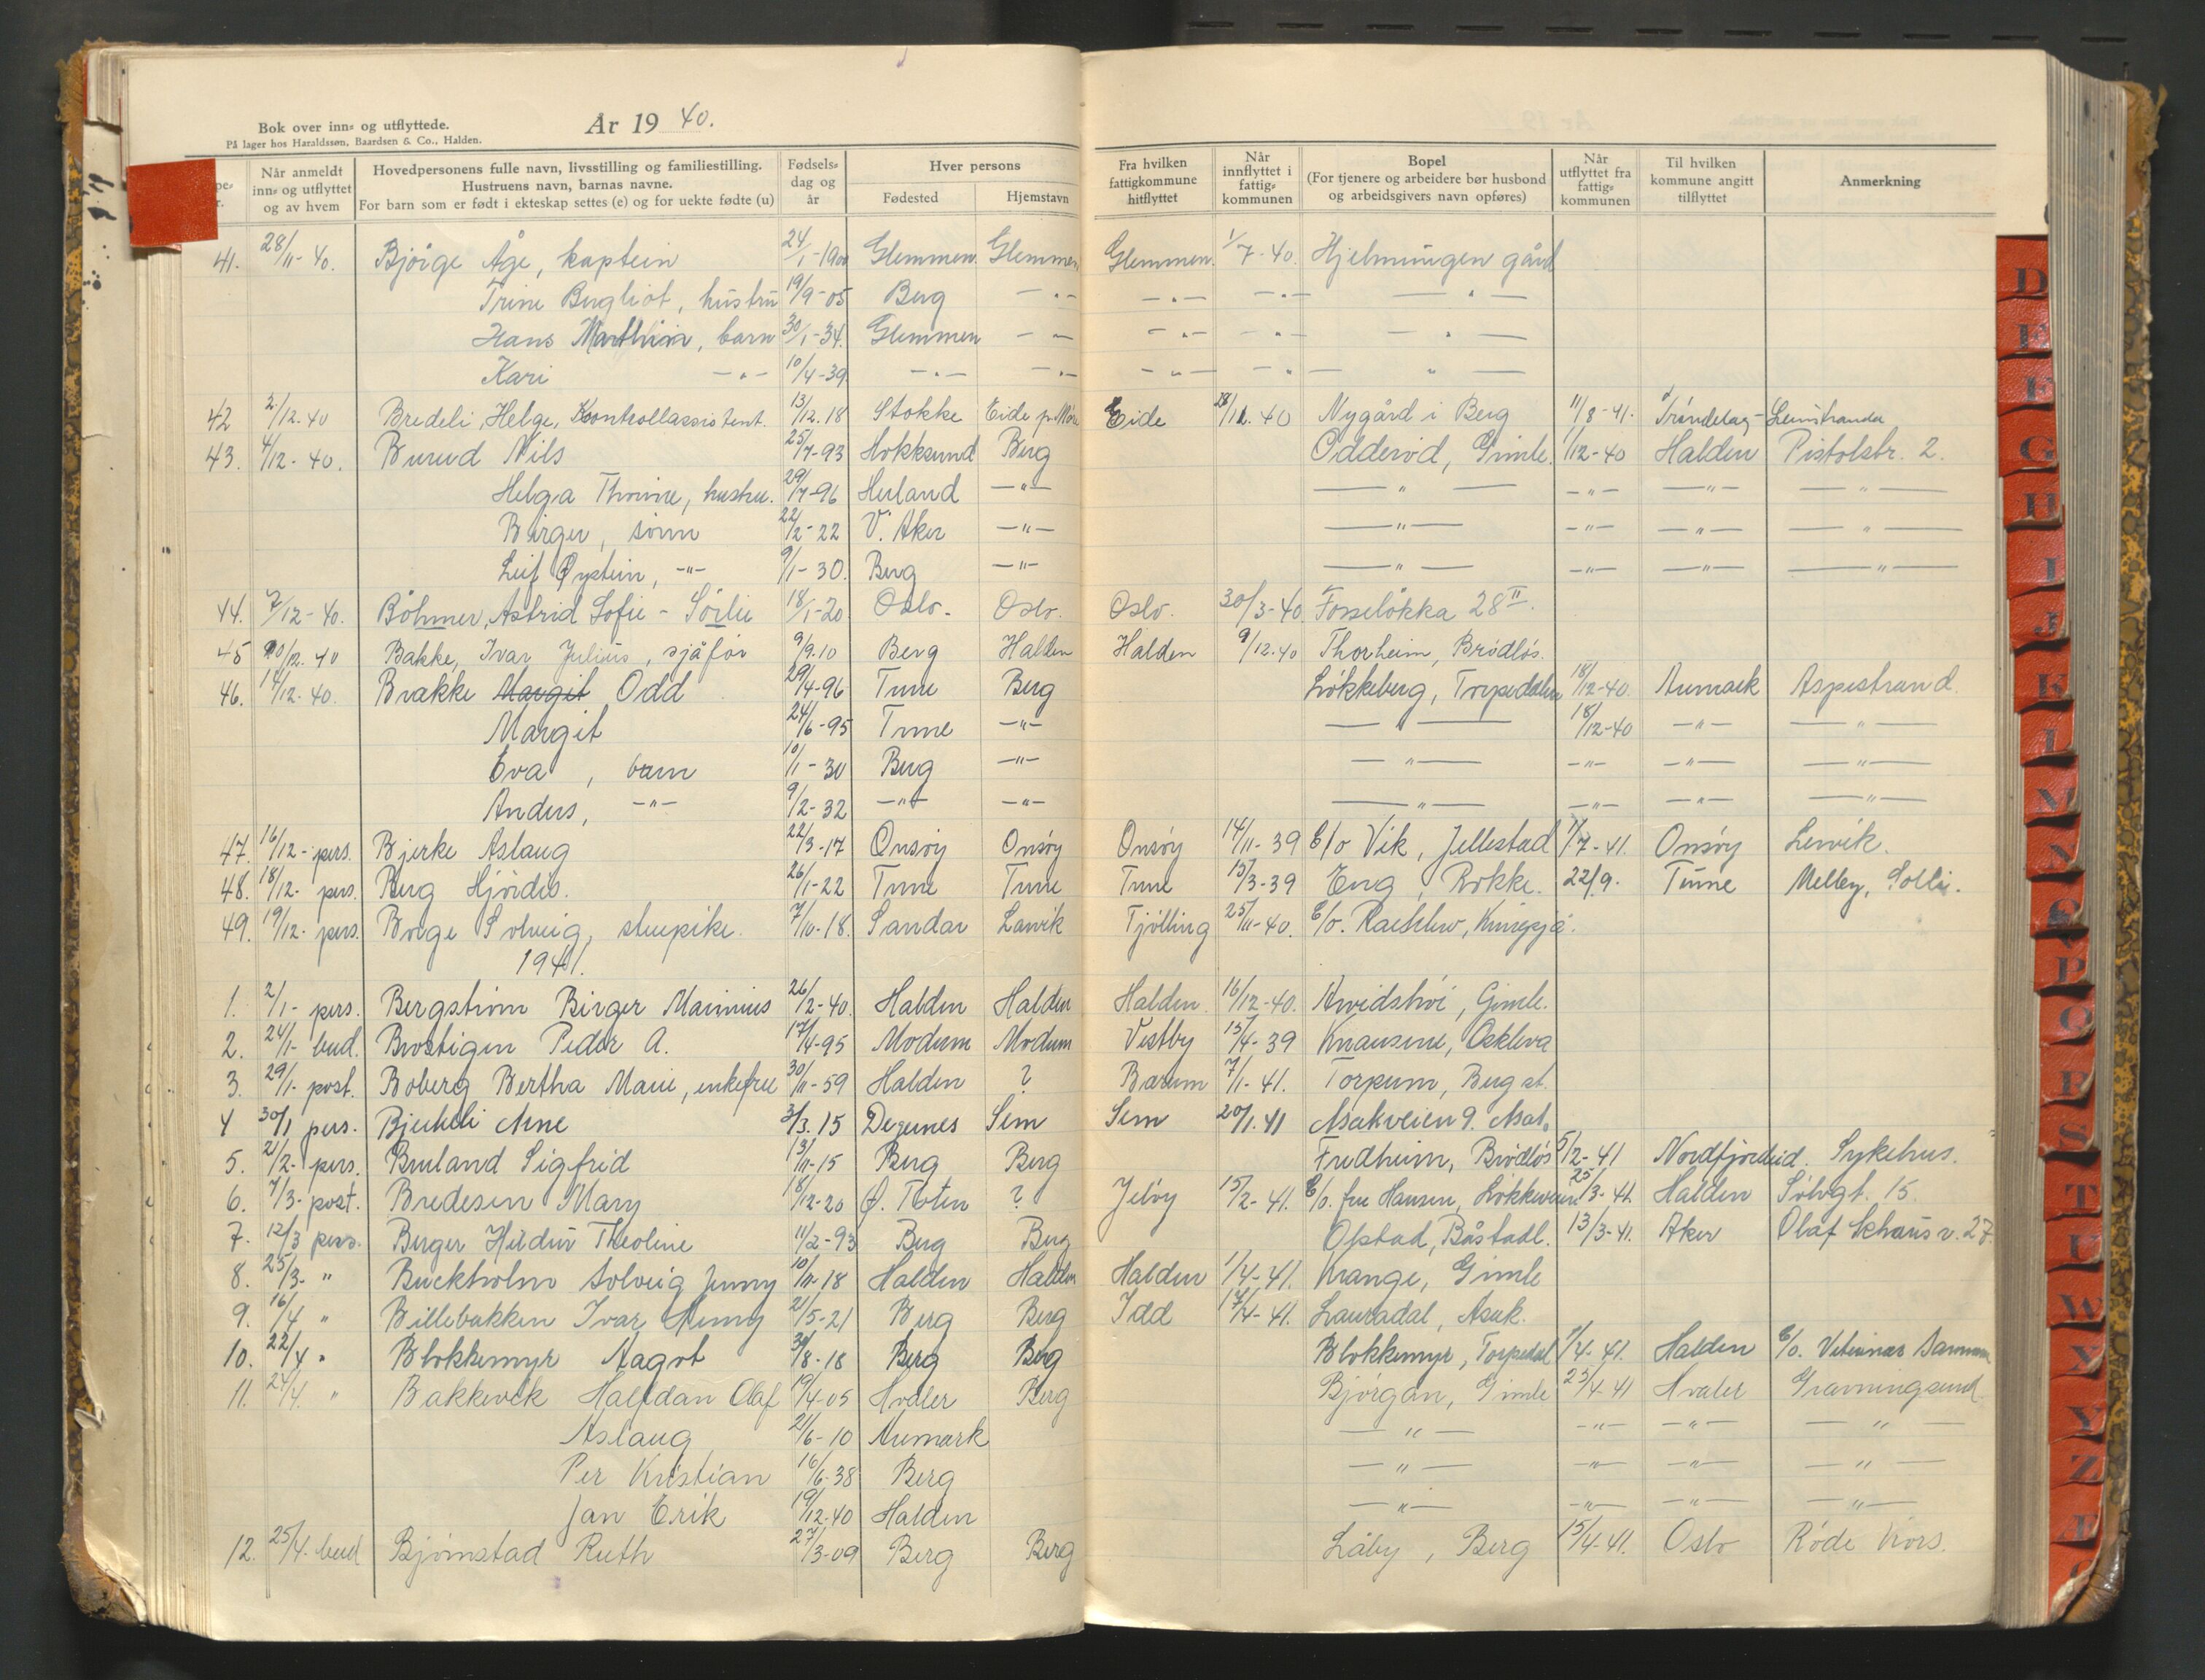 Bok over inn- og utflyttede. År 19 40.
På lager hos Haraldssøn, Baardsen & Co., Halden.
Når anmeldt inn- og utflyttet og av hvem
Hovedpersonens fulle navn, livsstilling og familiestilling. Hustruens navn, barnas navne. For barn som er født i ekteskap settes (e) og for uekte fødte (u)
Fødsels- dag og år
Hver persons
Fødested Hjemstavn
Fra hvilken fattigkommune hitflyttet
Når innflyttet i fattig- kommunen
Bopel (For tjenere og arbeidere bør husbond og arbeidsgivers navn opføres)
Når utflyttet fra fattig- kommunen
Til hvilken kommune angitt tilflyttet
Anmerkning
41. 28/11-40. Bjørge Åge, kaptein 24/1-1900 Glemmen Glemmen Glemmen. 1/7-40. Hjelmungen gård
Trine Bergliot, hustru 19/9-05 Berg -"- -"- -"- -"-
Hans Marthin, barn 30/1-34. Glemmen - - -"- -"- -"-
Kari -"- 10/4-39 -"- -"- -"- -"- -"-
42 2/12.40 Bredeli, Helge, Kontrollassistent. 13/12.18 Stokke Eide p. Møre Eide 28/11.40 Nygård i Berg 11/8-41. Trøndelag - Leinstranda
43. 4/12-40. Burud Nils 25/7-93 Hokksund Berg Odderød, Gimle. 1/12-40 Halden Pistolstr. 2.
Helga Thorine, hustru. 29/7-96 Herland -"- -"- -"- -"- -"-
Birger, sønn 22/2-22 V. Aker -"- -"- -"- -"- -"-
Leif Øystein, -"- 9/1-30. Berg -"- -"- -"- -"- -"-
44. 7/12-40. Böhmer, Astrid Sofie - Sørlie 18/1-20 Oslo. Oslo. Oslo. 30/3-40 Fosseløkka 28 II.
45 10/12.40 Bakke, Ivar Julius, sjåfør 9/9.10 Berg Halden Halden 9/12.40 Thorheim, Brødløs.
46. 14/12-40. Brakke Margit Odd 29/4-96 Tune Berg Løkkeberg, Torpedalen 18/12-40. Aremark Aspestrand.
Margit 24/6-95 Tune -"- -"- 18/12-40 -"- -"-
Eva, barn 10/1-30 Berg -"- -"- -"- -"- -"-
Anders, -"- 9/2-32 -"- -"- -"- -"- -"- -"-
47. 16/12- pers. Bjerke Aslaug 22/3-17 Onsøy Onsøy Onsøy 14/11-39 C/o Vik, Jellestad 1/7-41. Onsøy Lervik.
48. 18/12- pers. Berg Hjørdis. 26/1-22 Tune Tune Tune 15/3-39 Eng, Rokke. 22/9. Tune Melley, Solli.
49. 19/12- pers. Borge Solveig, stuepike. 7/10-18. Sandar Larvik Tjølling 25/11-40. C/o.
1941.
1. 2/1- pers. Bergstrøm Birger Marinius 26/2-40. Halden Halden Halden 16/12-40. Arvidshøi, Gimle.
2. 24/1- bud. Brostigen Peder A. 17/4-95 Modum Modum Vestby 15/4-39 Knausene, Oskleva
3. 29/1- post. Boberg Bertha Marie, enkefrue 30/11-59 Halden ? Bærum 7/1-41. Torpum, Berg st.
4 30/1 pers. Bjerkeli Arne 3/3.15 Sem Sem 20/1.41 Asakveien 9. Asak.
5. 21/2- pers. Bruland Sigfrid 13/11-15 Berg Berg Fredheim, Brødløs 5/2-41 Nordfjordeid. Sykehus.
6. 7/3- post. Bredesen Mary 18/12-20 Ø. Toten ? Jeløy 15/2-41. C/o. fru Hansen, Løkkeveien 25/3-41. Halden Sølvgt. 15.
7. 12/3 pers. Berger Hildur Theoline 11/2-93 Berg Berg Opstad, Båstadl. 13/3-41. Aker Olaf Schous v. 27.
8. 25/3- " Buckholm Solveig Jenny 10/11-18 Halden Halden Halden 1/4-41. Krange, Gimle
9. 16/4 " Billebakken Ivar Henry 21/5-21 Berg Berg Idd 17/4-41. Lauradal, Asak.
10. 22/4 " Blokkemyr Aagot 30/8-18 Berg Berg Blokkemyr, Torpedal 1/4-41. Halden C/o. Veterinær
11. 24/4. " Bakkevik Halfdan Olaf 19/4-05 Hvaler Berg Bjørgan, Gimle 23/4-41 Hvaler Gravningsund
Aslaug 21/6-10 Aremark -"- -"- -"- -"-
Per Kristian 16/6-38 Berg -"- -"- -"- -"-
Jan Erik 19/12-40 Halden -"- -"- -"- -"-
12. 25/4. bud Bjørnstad Ruth 27/3-09 Berg Berg Låby, Berg 15/4-41. Oslo Røde Kors.
D
E
F
G
H
I
J
K
L
M
N
O
P
Q
R
S
T
U
W
X
Y
Z
Æ